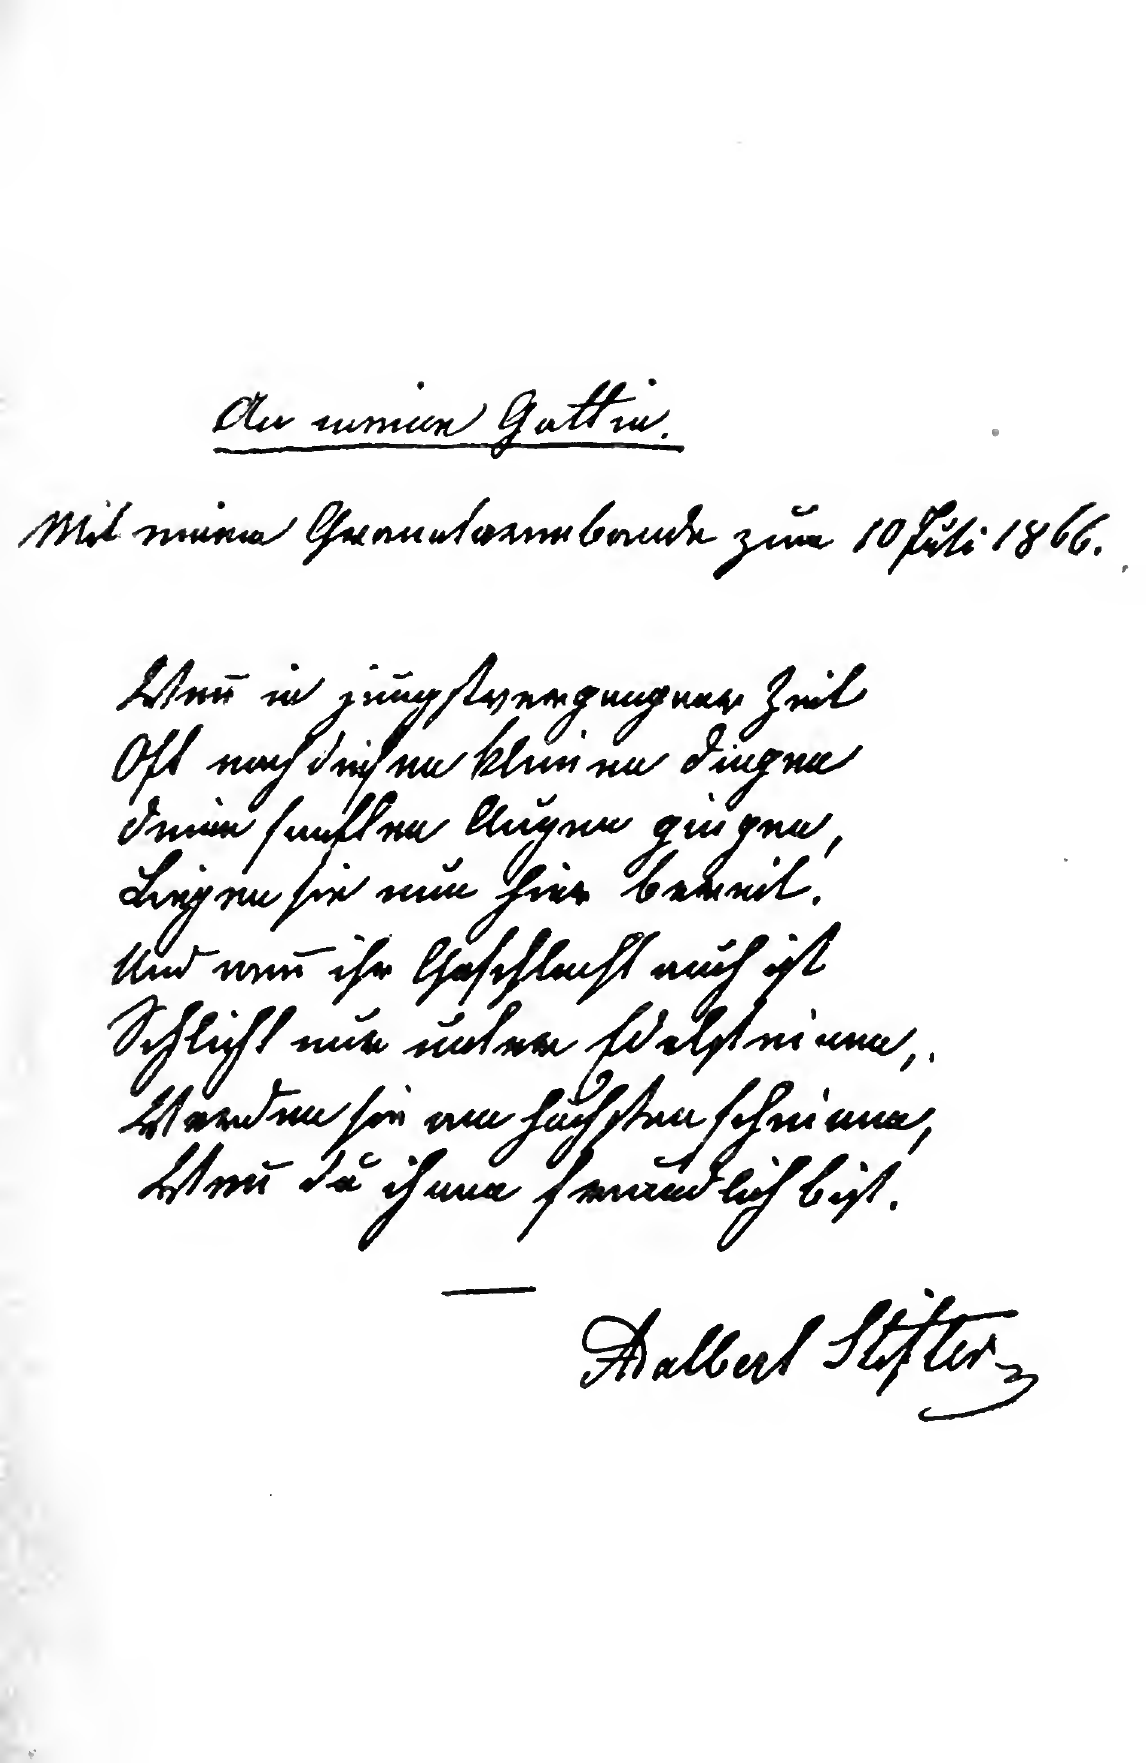 An meine Gattin.
Mit einem Granatarmbande zum 10 Juli 1866.
Wen̄ in jüngstvergangner Zeit
Oft nach diesen kleinen Dingen
Deine sanften Augen gingen,
Liegen sie nun hier bereit.
Und wen̄ ihr Geschlecht auch ist
Schlicht nur unter Edelsteinen,
Werden sie am höchsten scheinen,
Wen̄ du ihnen freundlich bist.
Adalbert Stifter